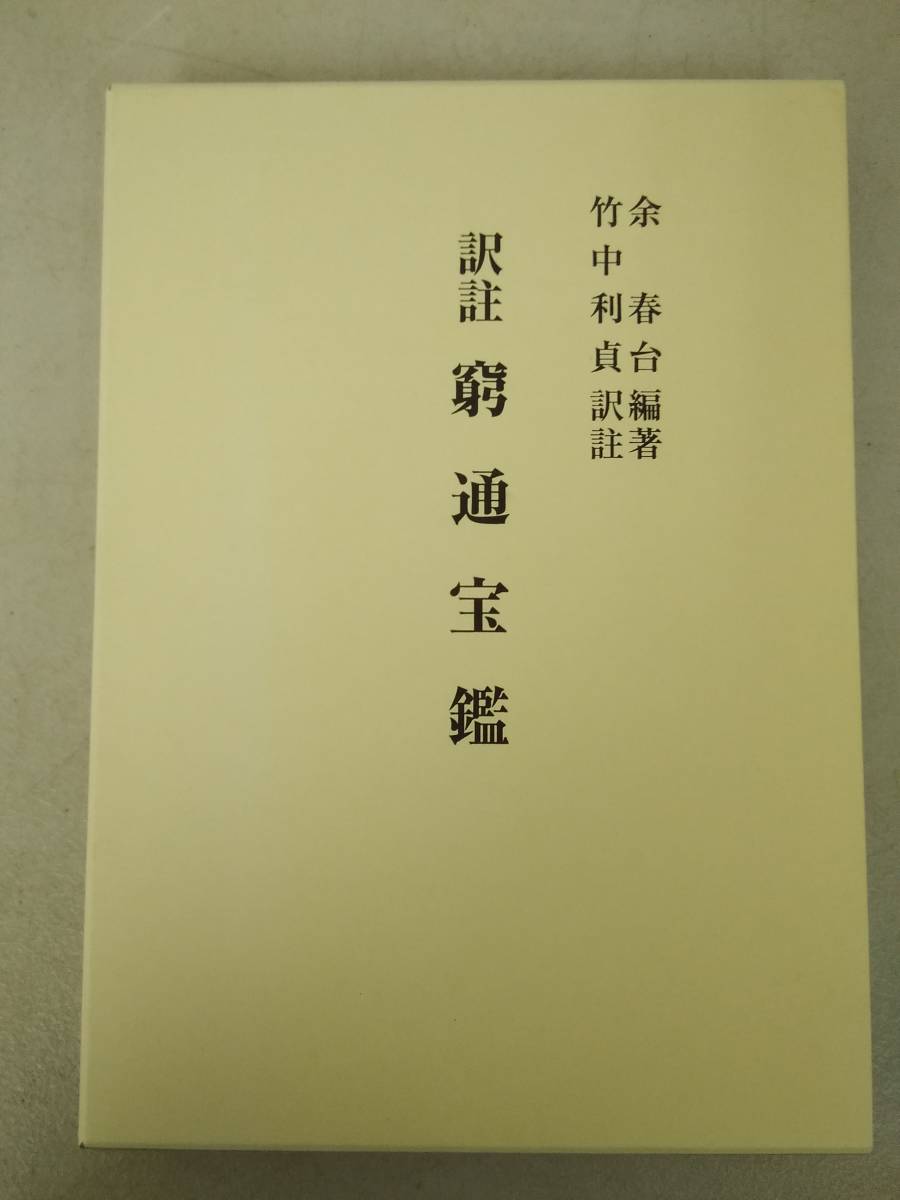 余 春台 編著
竹中利貞 訳註
訳註 窮通宝鑑